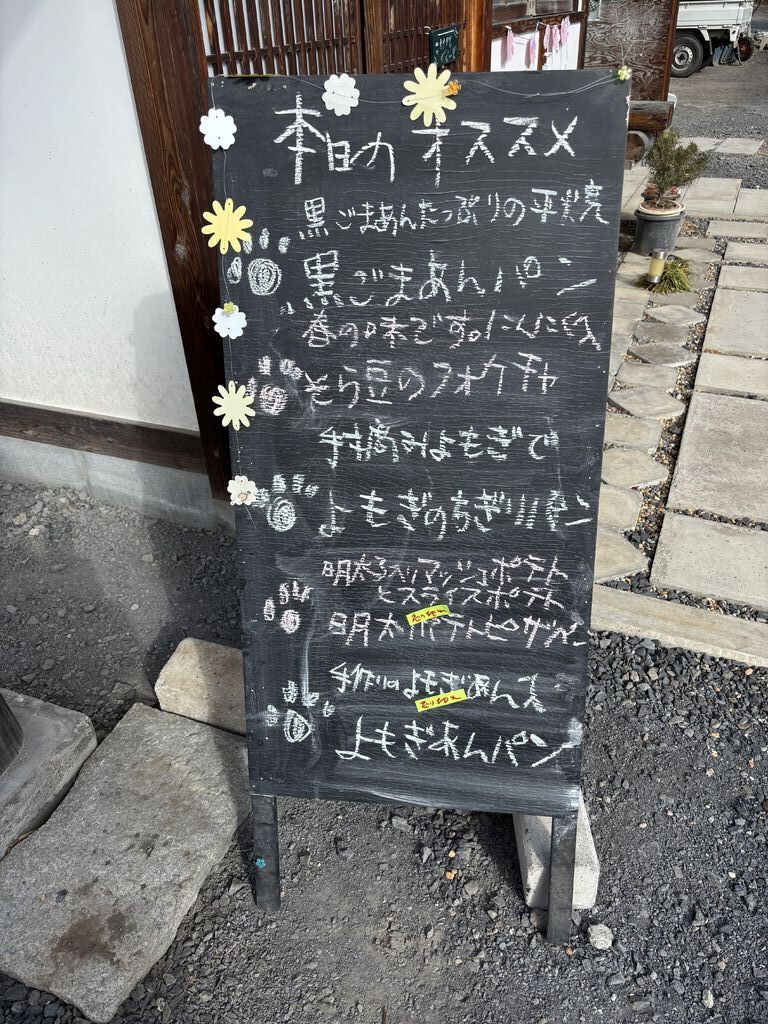 本日のオススメ
黒ごまあんたっぷりの平焼
黒ごまあんパン
春の味です。にんにく
そら豆のフォカチャ
手摘みよもぎで
よもぎのちぎりパン
明太子入りマッシュポテト
とスライスポテト
売り切れ
明太ポテトピザパン
手作りのよもぎあん
売り切れ
よもぎあんパン